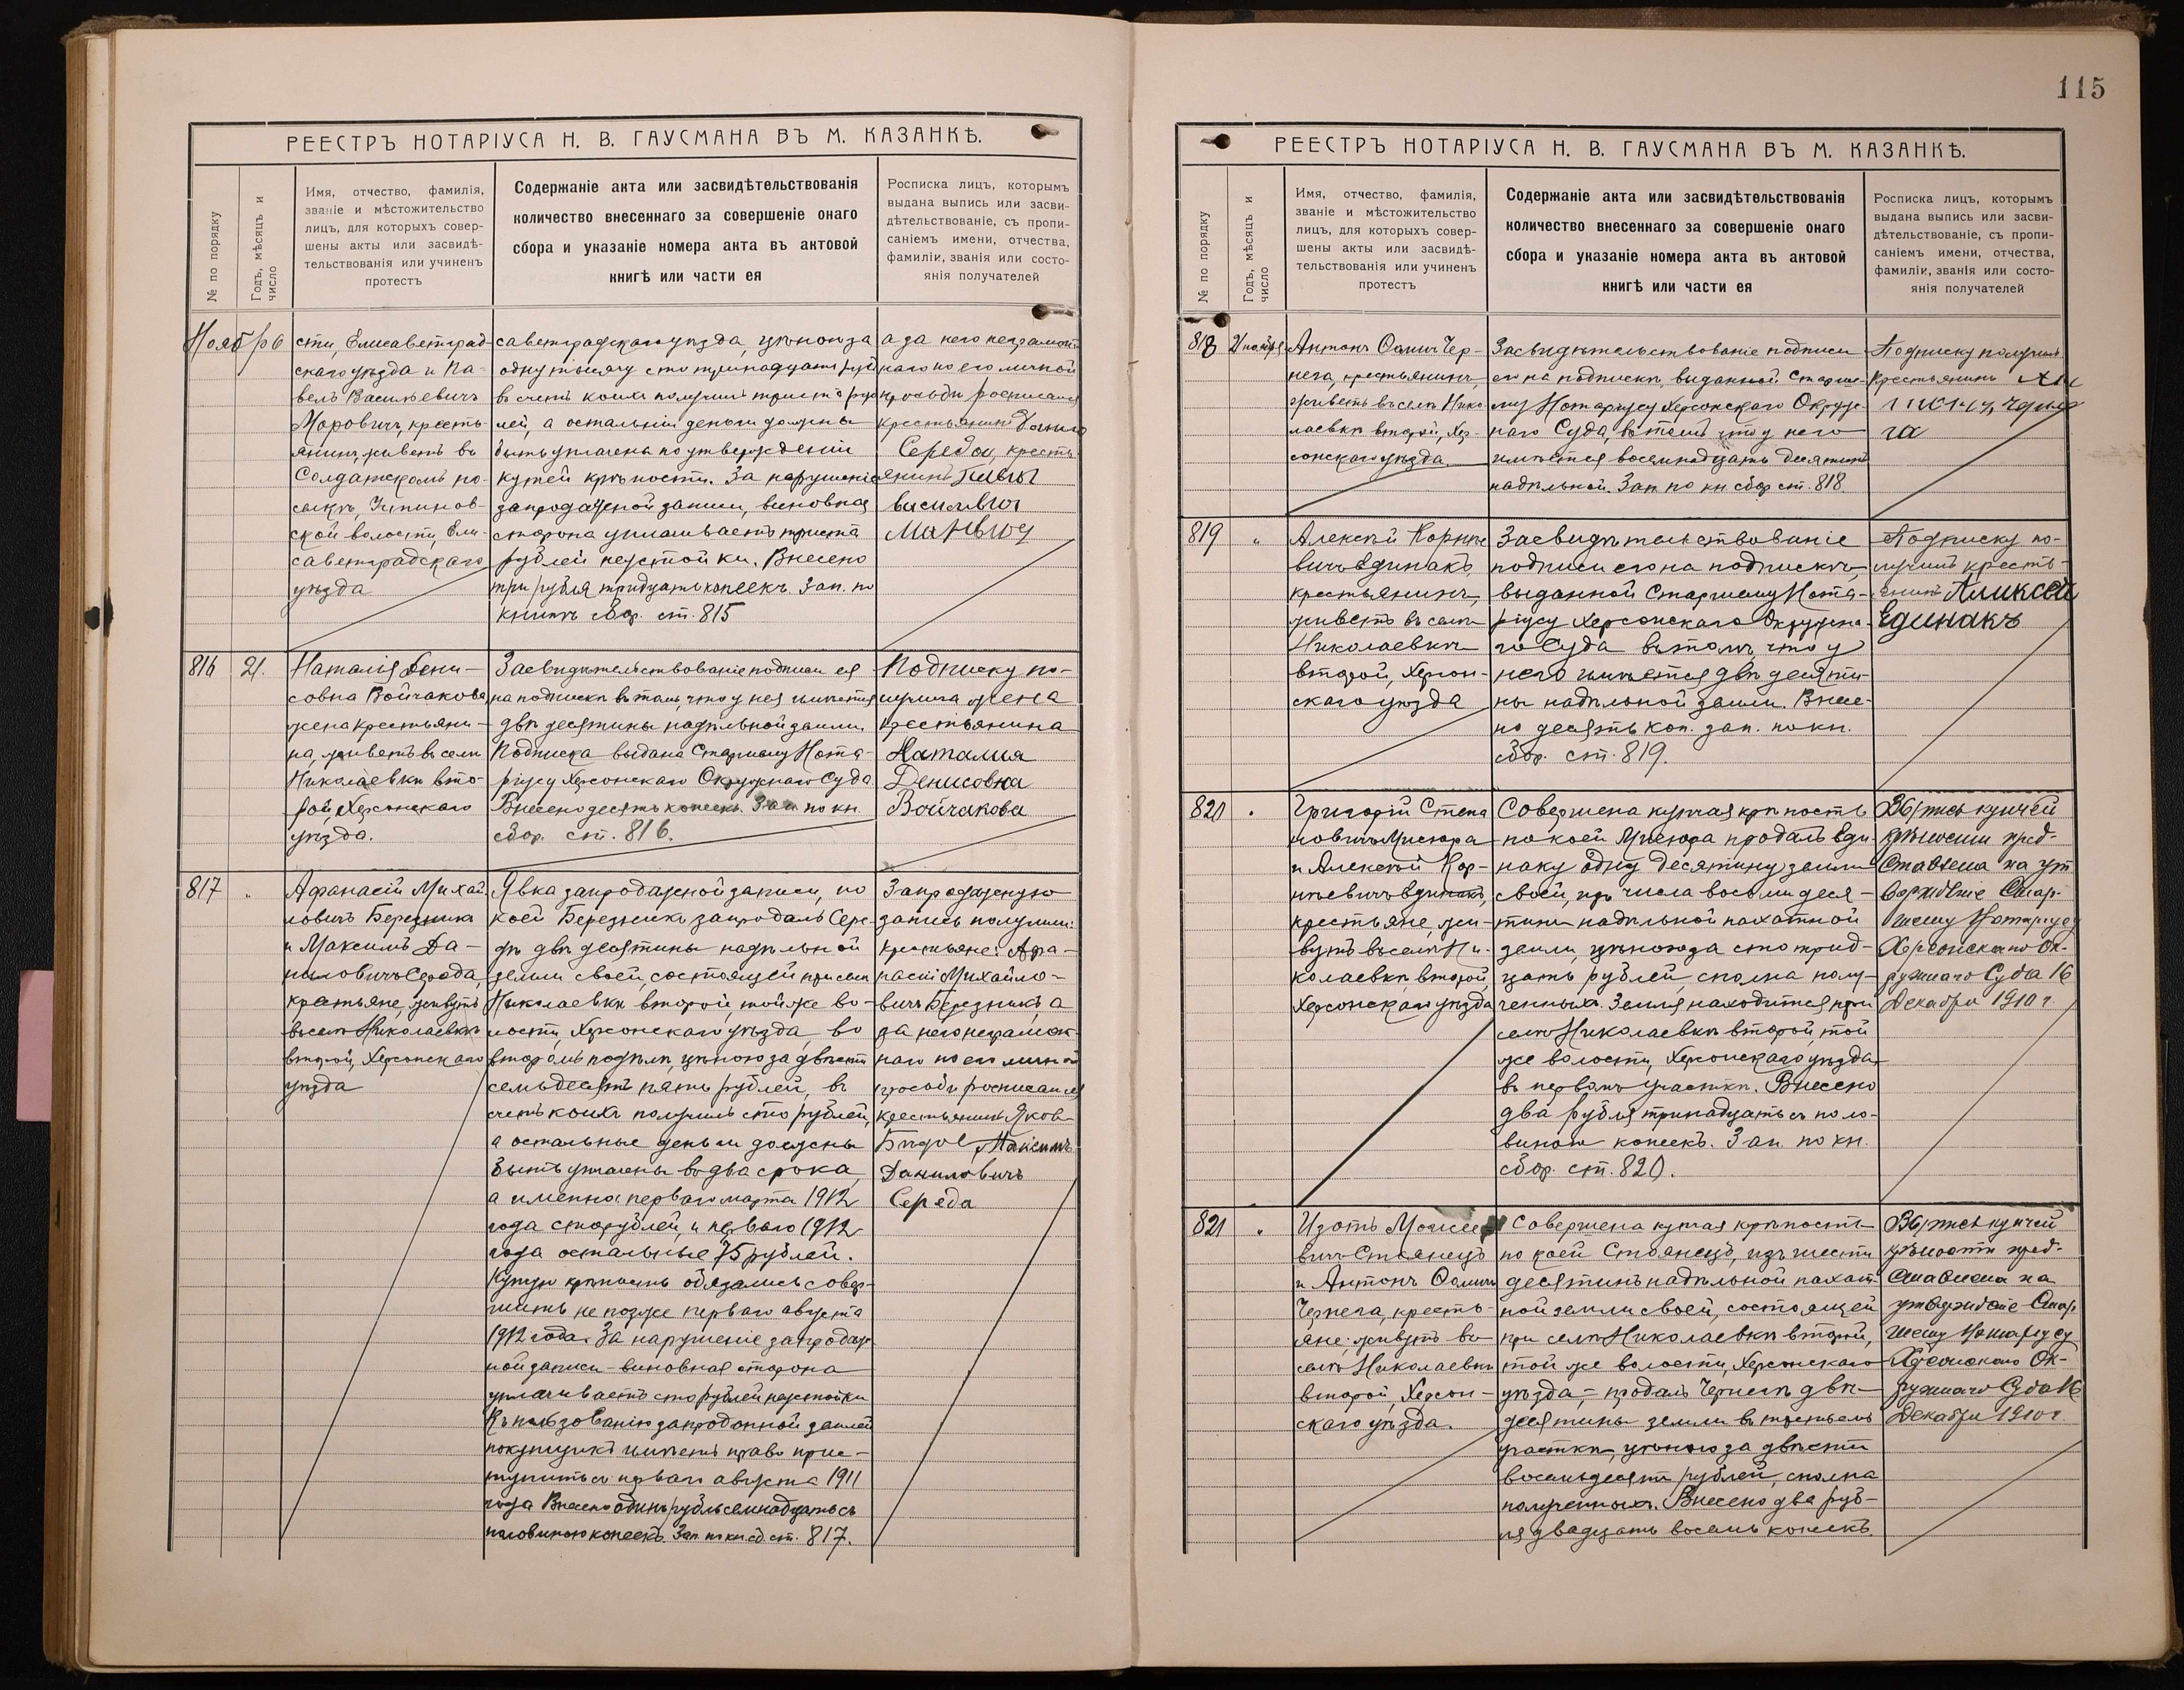 РЕЕСТРЪ НОТАРІУСА Н. В. ГАУСМАНА ВЪ М. КАЗАНКѢ.
№ по порядку
Годъ, мѣсяцъ и
число
Имя, отчество, фамилія,
званіе и мѣстожительство
лицъ, для которыхъ совер-
шены акты или засвидѣ-
тельствованія или учиненъ
протестъ
Содержаніе акта или засвидѣтельствованія
количество внесеннаго за совершеніе онаго
сбора и указаніе номера акта въ актовой
книгѣ или части ея
Росписка лицъ, которымъ
выдана выпись или засви-
дѣтельствованіе, съ пропи-
саніемъ имени, отчества,
фамиліи, званія или состо-
янія получателей
сти, Елисаветград
скаго уѣзда и Па-
велъ Васильевичъ
Маровичъ, кресть-
янинъ, живетъ въ
Солдатскомъ по-
селкѣ,
ской волости, Ели-
саветградскаго
уѣзда
саветградскаго уѣзда, цѣною за
одну тысячу сто тринадцать руб
въ счетъ коихъ получилъ триста руб
лей, а остальныя деньги должны
быть уплачены по утвержденіи
купчей крѣпости. За нарушеніе
запродажной записи, виновная
сторона уплачиваетъ триста
рублей неустойки. Внесено
три рубля тридцать копеекъ. Зап. по
книгѣ сбор. ст. 815
а за него неграмот
наго по его личной
просьбѣ росписался
крестьянинъ Данило
Середа, кресть-
янинъ Павел
василвич
816
21.
Наталія Дени-
совна Войчакова
жена крестьяни-
на, живетъ въ селѣ
Николаевкѣ вто-
рой, Херсонскаго
уѣзда.
Засвидѣтельствованіе подписи ея
на подпискѣ въ томъ, что у нея имѣется
двѣ десятины надѣльной земли.
Подписка выдана Старшему Нота-
ріусу Херсонскаго Окружнаго Суда
Внесено десять копеекъ. Зап. по кн.
сбор. ст. 816.
Подписку по-
лучила жена
крестьянина
Наталия
Денисовна
Войчакова
817
"
Афанасій Михай
ловичъ Березника
и Максимъ Да-
ниловичъ Середа,
крестьяне, живутъ
въ селѣ Николаевкѣ
второй, Херсонскаго
уѣзда
Явка запродажной записи, по
коей Березникъ запродалъ Сере-
дѣ двѣ десятины надѣльной
земли своей, состоящей при селѣ
Николаевкѣ второй, той же во-
лости, Херсонскаго уѣзда, во
второмъ подѣлѣ, цѣною за двѣсти
семьдесятъ пять рублей, въ
счетъ коихъ получилъ сто рублей,
а остальные деньги должны
быть уплачены въ два срока,
а именно: перваго марта 1912
года сто рублей, и перваго 1912
года остальные 75 рублей.
Купчую крѣпость обязались совер-
шить не позже перваго августа
1912 года. За нарушеніе запродаж
ной записи виновная сторона
уплачиваетъ сто рублей неустойки
Къ пользованію запроданной землей
покупщикъ имѣетъ право прис-
тупить съ перваго августа 1911
года Внесено одинъ рубль семнадцать съ
половиною копеекъ. Зап. по кн. сб. ст. 817.
Запродажную
запись получили:
крестьяне: Афа-
насій Михайло-
вичъ Березникъ, а
за него неграмот-
наго по его личной
просьбѣ росписался
крестьянинъ Яков
Максимъ
Даниловичъ
Середа
115
РЕЕСТРЪ НОТАРІУСА Н. В. ГАУСМАНА ВЪ М. КАЗАНКѢ.
№ по порядку
Годъ, мѣсяцъ и
число
Имя, отчество, фамилія,
званіе и мѣстожительство
лицъ, для которыхъ совер-
шены акты или засвидѣ-
тельствованія или учиненъ
протестъ
Содержаніе акта или засвидѣтельствованія
количество внесеннаго за совершеніе онаго
сбора и указаніе номера акта въ актовой
книгѣ или части ея
Росписка лицъ, которымъ
выдана выпись или засви-
дѣтельствованіе, съ пропи-
саніемъ имени, отчества,
фамиліи, званія или состо-
янія получателей
818
21 ноября
Антонъ Ѳомичъ Чер-
нега, крестьянинъ,
живетъ въ селѣ Нико
лаевкѣ второй, Хер-
сонскаго уѣзда.
Засвидѣтельствованіе подписи
его на подпискѣ, выданной Старше-
му Нотаріусу Херсонскаго Окруж-
наго Суда, въ томъ что у него
имѣется восемнадцать десятинъ
надѣльной. Зап. по кн. сбор. ст. 818.
Подписку получилъ
крестьянинъ
га
819
"
Алексѣй Корнѣе
вичъ Единакъ,
крестьянинъ,
живетъ въ селѣ
Николаевкѣ
второй, Херсон-
скаго уѣзда
Засвидѣтельствованіе
подписи его на подпискѣ,
выданной Старшему Нота-
ріусу Херсонскаго Окружна-
го Суда въ томъ, что у
него имѣется двѣ десяти-
ны надѣльной земли. Внесе-
но десять коп. зап. по кн.
сбор. ст. 819.
Подписку по-
лучилъ кресть-
янинъ Аликсей
Единакъ
820
"
Григорій Степа
новичъ Мисюра
и Алексѣй Кор-
нѣевичъ Единакъ,
крестьяне, жи-
вутъ въ селѣ Ни-
колаевкѣ, второй,
Херсонскаго уѣзда
Совершена купчая крѣпость
по коей Мисюра продалъ Еди-
наку одну десятину земли
своей, изъ числа восьми деся-
тинъ надѣльной пахатной
земли, цѣною за сто трид-
цать рублей, сполна полу-
ченныхъ. Земля находится при
селѣ Николаевкѣ второй, той
же волости, Херсонскаго уѣзда
въ первомъ участкѣ. Внесено
два рубля тринадцать съ поло-
виною копеекъ. Зап. по кн.
сбор. ст. 820.
Выпись купчей
крѣпости пред-
ставлена на ут
вержденіе Стар-
шему Нотаріусу
Херсонскаго Ок-
ружнаго Суда 16
Декабря 1910 г.
821
"
Изотъ Моисее
вичъ Стоянецъ
и Антонъ Ѳомичъ
Чернега, кресть-
яне, живутъ въ
селѣ Николаевкѣ
второй, Херсон-
скаго уѣзда.
Совершена купчая крѣпость
по коей Стоянецъ, изъ шести
десятинъ надѣльной пахат-
ной земли своей, состоящей
при селѣ Николаевкѣ второй,
той же волости, Херсонскаго
уѣзда, - продалъ Чернегѣ двѣ
десятины земли въ третьемъ
участкѣ, цѣною за двѣсти
восемьдесятъ рублей, сполна
полученныхъ. Внесено два руб-
ля двадцать восемь копеекъ.
Выпись купчей
крѣпости пред-
ставлена на
утвержденіе Стар
шему Нотаріусу
Херсонскаго Ок-
ружнаго Суда 16
Декабря 1910 г.